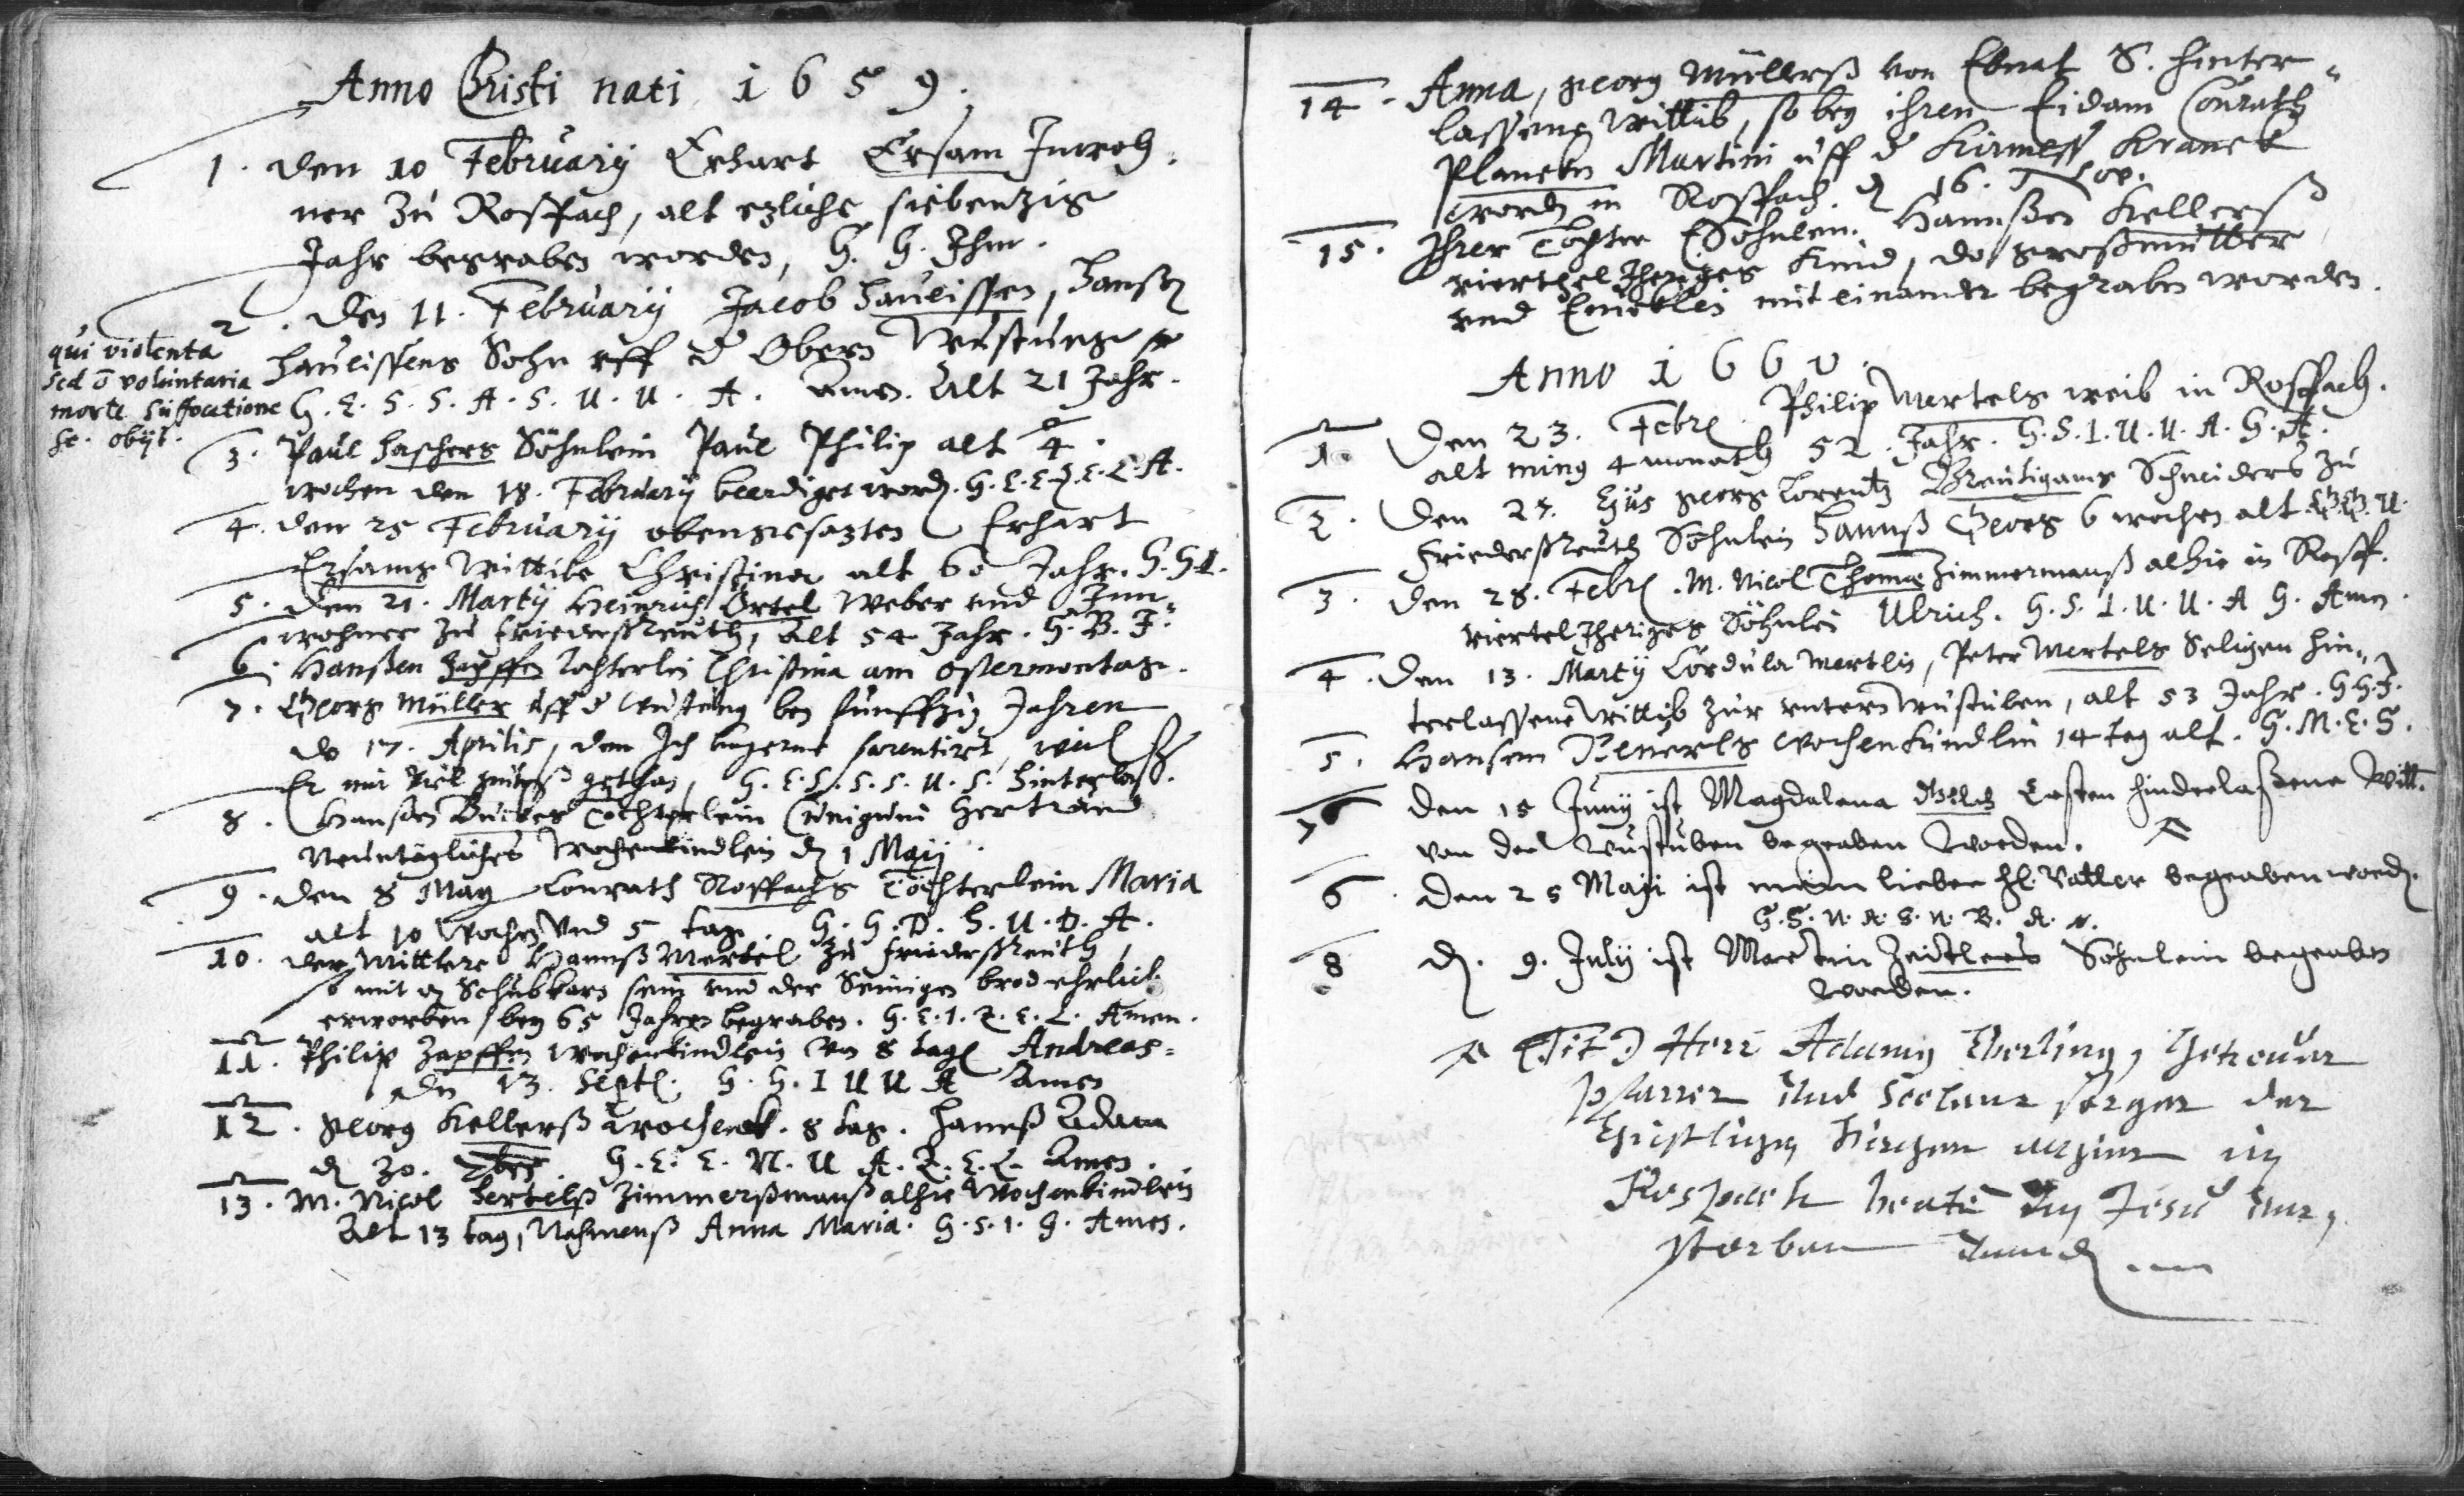 Anno Christi nati 1659.
1. den 10 February Erhart Ersam Inwoh-
ner zu Roßpach, alt etzliche siebenzig
Jahr begraben worden, G. G. Ihm.
2. den 11. February Jacob Hanß
Sohn uff d Obern Wustung
G. E. S. S. A. S. U. U. A. Amen. Alt 21 Jahr.
qui violenta
sed õ voluntaria
morte suffocatione
sc. obijt.
3. Paul Söhnlein Paul Philip alt 4
wochen den 18. February beerdiget word. G. E. E. E. L. A.
4. den 25 February obengesazten Erhart
Ersams Wittibe Christina alt 60 Jahr. G. G. I.
5. den 21. Martij Heinrich Örtel Weber und Inn-
wohner zu Friederßreuth, alt 54 Jahr. G. B. I.
6. Hanßen Zapffen töchterlein Christina am ostermontag.
7. Georg Müller uff d Wustung bey funffzig Jahren
de 17. Aprilis, dem Ich parentirt, weil
Er mir viel guteß gethan, G. E. S. S. S. U. S.
8. Hanßen Töchterlein Cunigund Gertraud
Neuntägliches Wochenkindlein d 1 Maij
9. den 8 May Conrath Roßpachs Töchterlein Maria
alt 10 Wochen und 5 tag. G. G. D. S. U. D. A.
10. der Mittlere Hannß Mertel zu Friederßreuth,
so mit d Schubkarn sein und der Seinigen brod ehrlich
erworben, bey 65 Jahren begraben. G. E. I. R. E. L. Amen.
11. Philip Zapffen Wochenkindlein von 8 tag Andreas
den 13. Sept. G. G. I U U A Amen
12. Georg Kellerß Wochenk. 8 tag. Hannß Adam
d 30. 7br. G. E. E. N. U A. R. E. L. Amen.
13. M. Nicol Hertelß Zimmerßmanß alhie Wochenkindlein
Alt 13 tag, Nahmenß Anna Maria. G. S. I. G. Amen.
14. Anna, Georg Müllerß von Ebnat S. hinter-
lassene Wittib, so bey ihren Eidam Conrath
Martini uff d Kirmeß Kranck
word in Roßpach. d 16. Nov.
15. Ihrer Tochter Söhnlein. Hannßen Kellerß
vierthel Jheriges Kind, da großmutter
und Encklein mit einander begraben worden.
Anno 1660.
1. Den 23. Febr. Philip Mertels weib in Roßpach.
alt minus 4 monath 52. Jahr. G. S. I. U. U. A. G. A.
2. Den 27. Ejus Georg Lorentz Breutigams Schneiders zu
Friederßreuth Söhnlein Hannß Georg 6 wochen alt
3. den 28. Febr. M. Nicol Thomae Zimmermanß alhie in Roßp.
viertel Jheriges Söhnlein Ulrich. G. S. I. U. U. A G. Amen
4. Den 13. Martij Cordula Mertlin, Peter Mertels Seligen hin-
terlassene Wittib zur untern Wustuben, alt 53 Jahr. G G. I.
5. Hansen Wochenkindlin 14 tag alt. G. M. E. G.
7 den 15 Junij ist Magdalena hinderlaßene Witt.
von der Wustuben begraben worden.
6. den 25 Maji ist mein lieber hl. Vatter begraben word.
G. S. U. A. S. U. B. A.
8 d. 9. Julij ist Martin Zeitlers Söhnlein begraben
worden.
(Tit) Herr Adamus Eberling, Getreuer
Pfarrer und Seelen sorger der
Christlichen Kirchen in
Rospach in Jesu ver-
storben